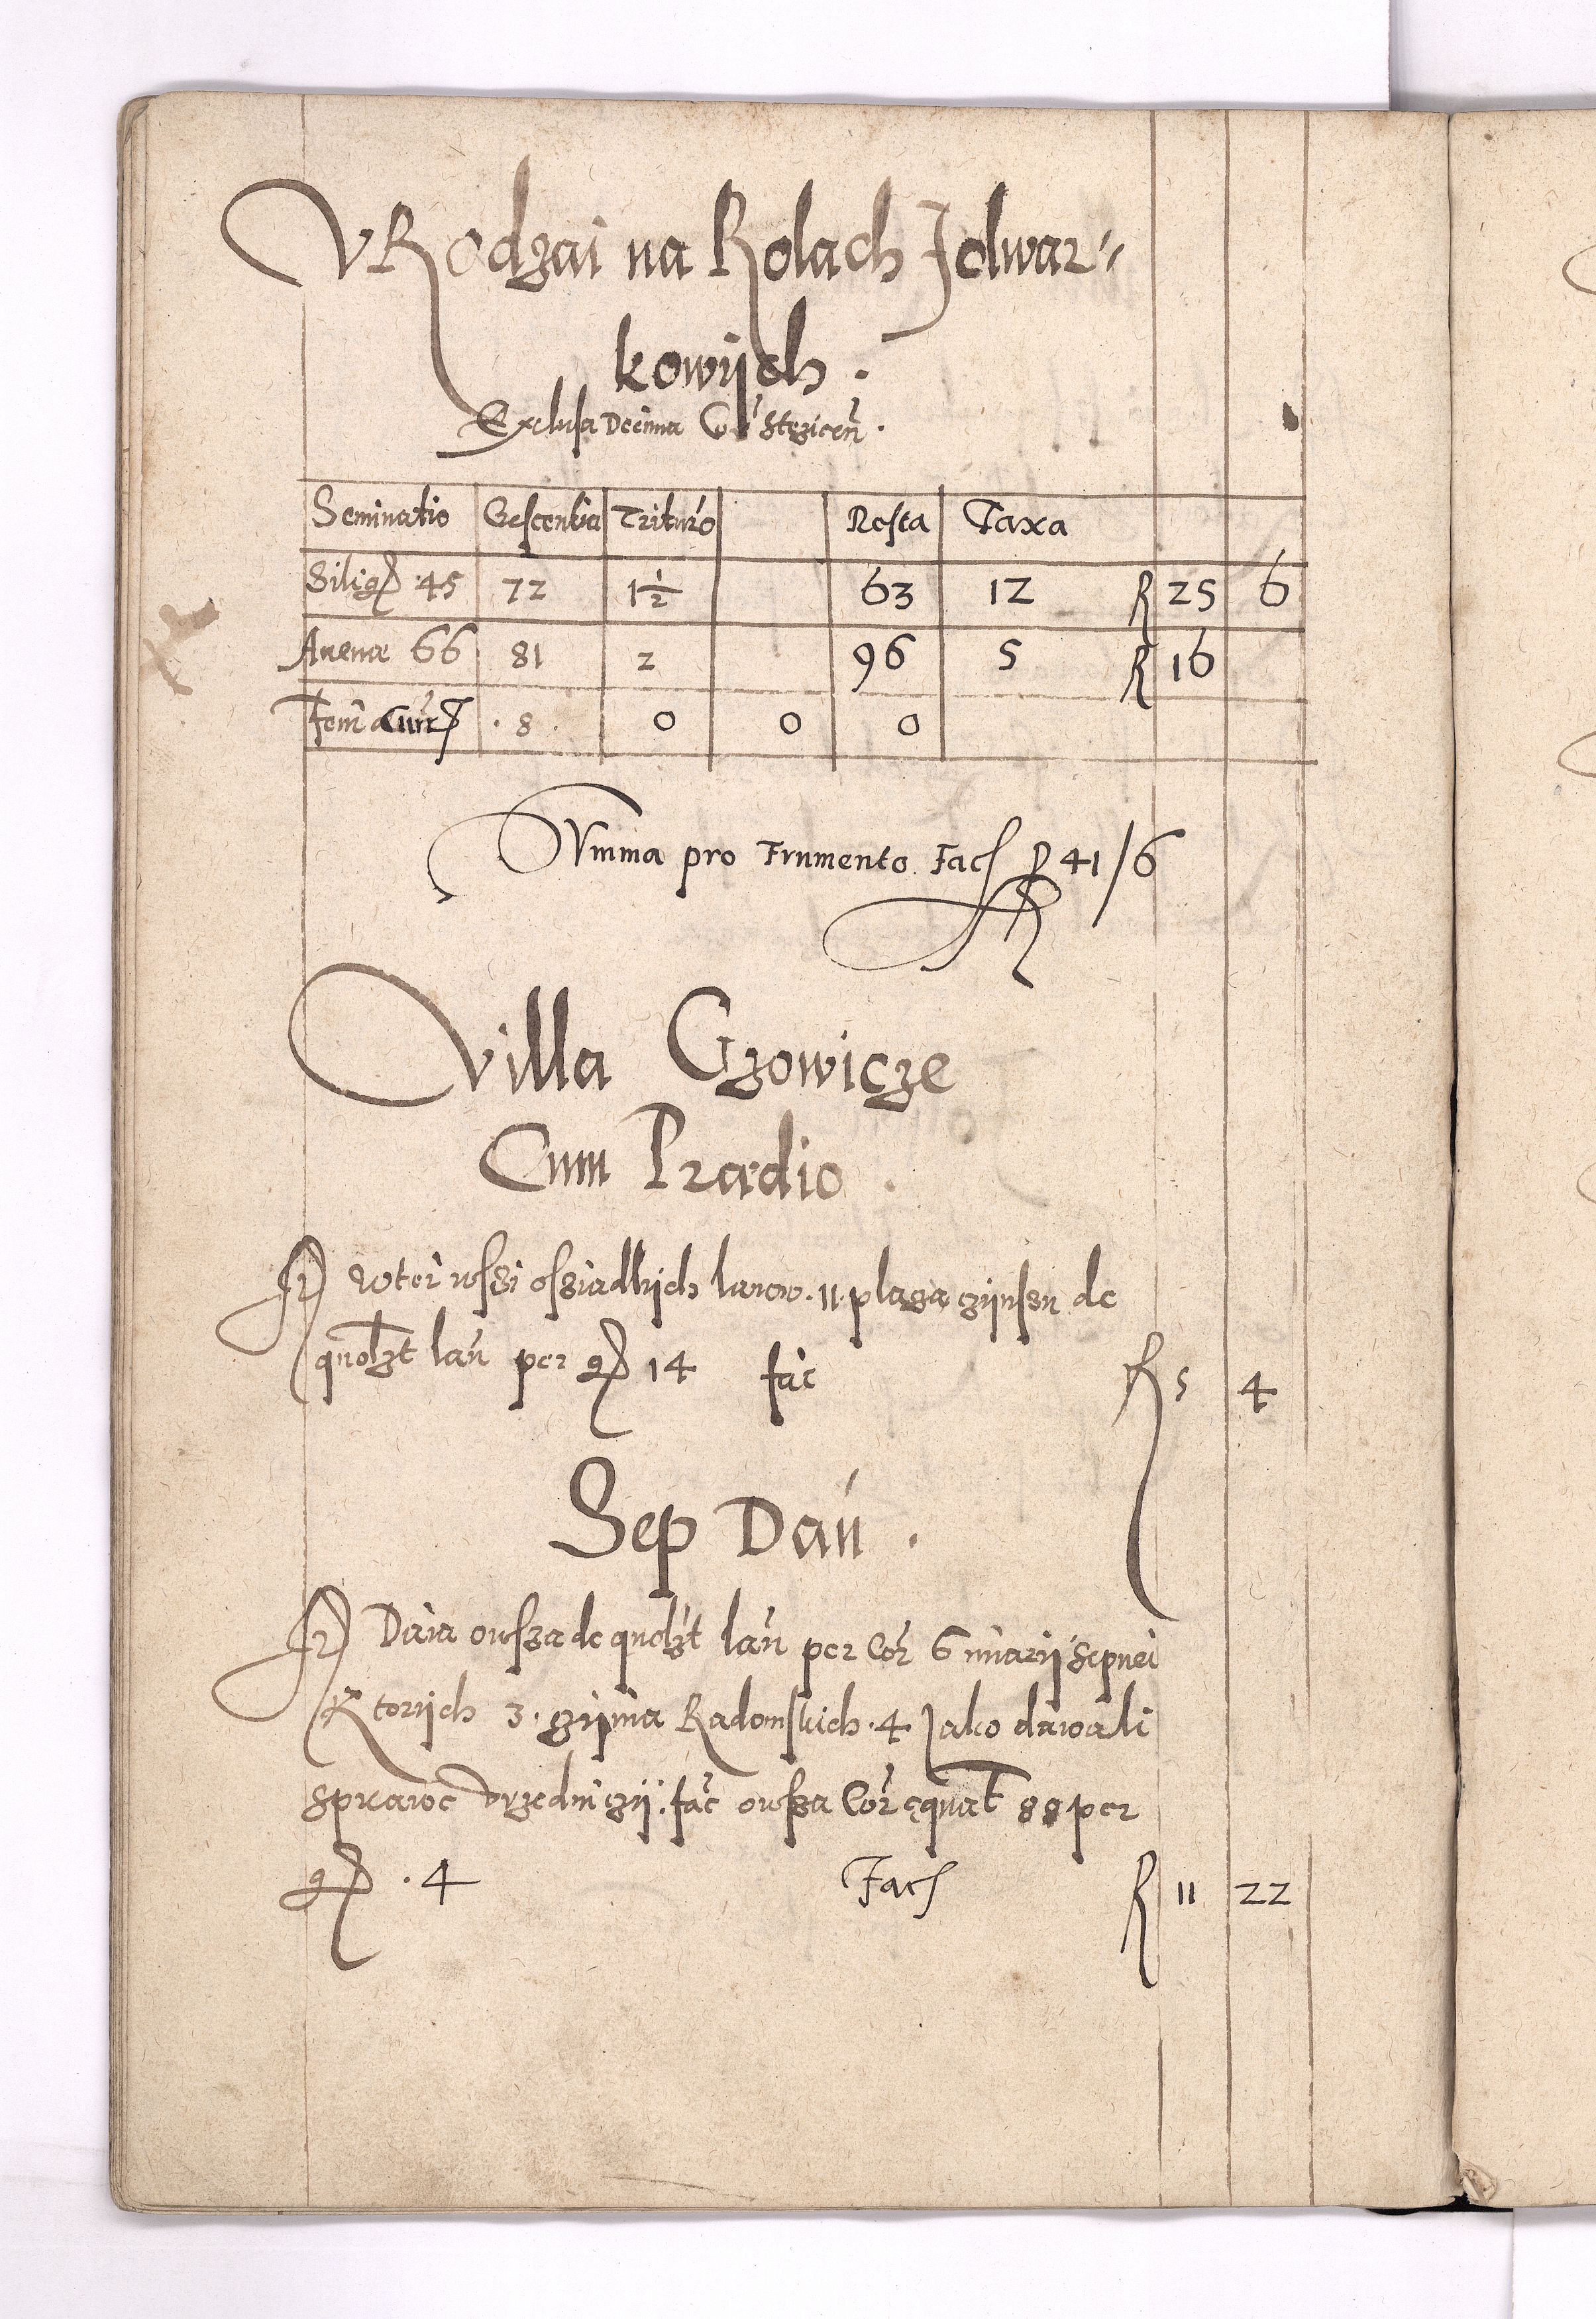 VRodzai na Rolach Folwar〃
kowÿch.
Exclusa Decima Stezicen̄.
Seminatio Crescentia Trituro Resta Taxa
Silig 45 72 1½ 63 12 R 25 6
Auena 66 81 2 96 5 R 16
Fem̄ 8 0 0 0
Summa pro Frumento. Fac R 41/6
Villa Gzowicze
Cum Prædio.
It wtei wssi ossiadlÿch lanow. 11. plaza czÿnszu de
quolzt lan̄ per g 14 fac̄ R 5 4
Sep Dan̄.
It Daia owsza de quolzt lan̄ per Cor̄ 6 miarÿ sepnei
Ktorÿch 3. Radomskich. 4 Jako dawali
sprawe Vrzedniczÿ. fac̄ owsza Cor̄ 88 per
g. 4 Fac R 11 22